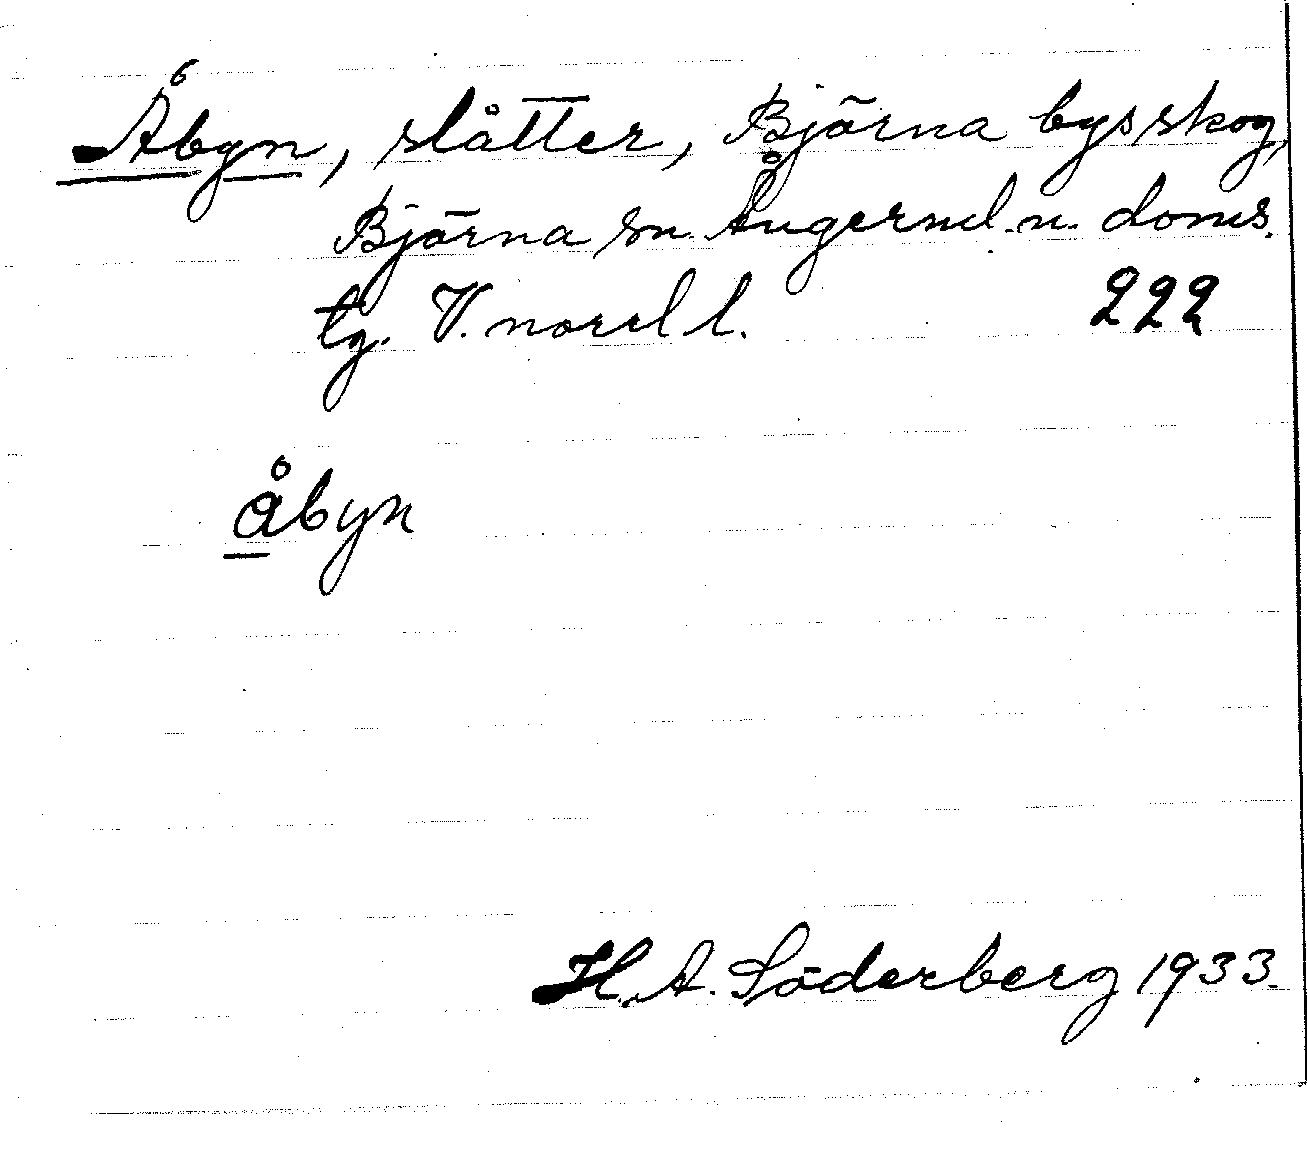 Åbyn, slåtter, Björna bys skog,
Björna sn. Ångerml. n. doms.
tg. V. norrl l. 222
åbyn
H. A. Söderberg 1933.